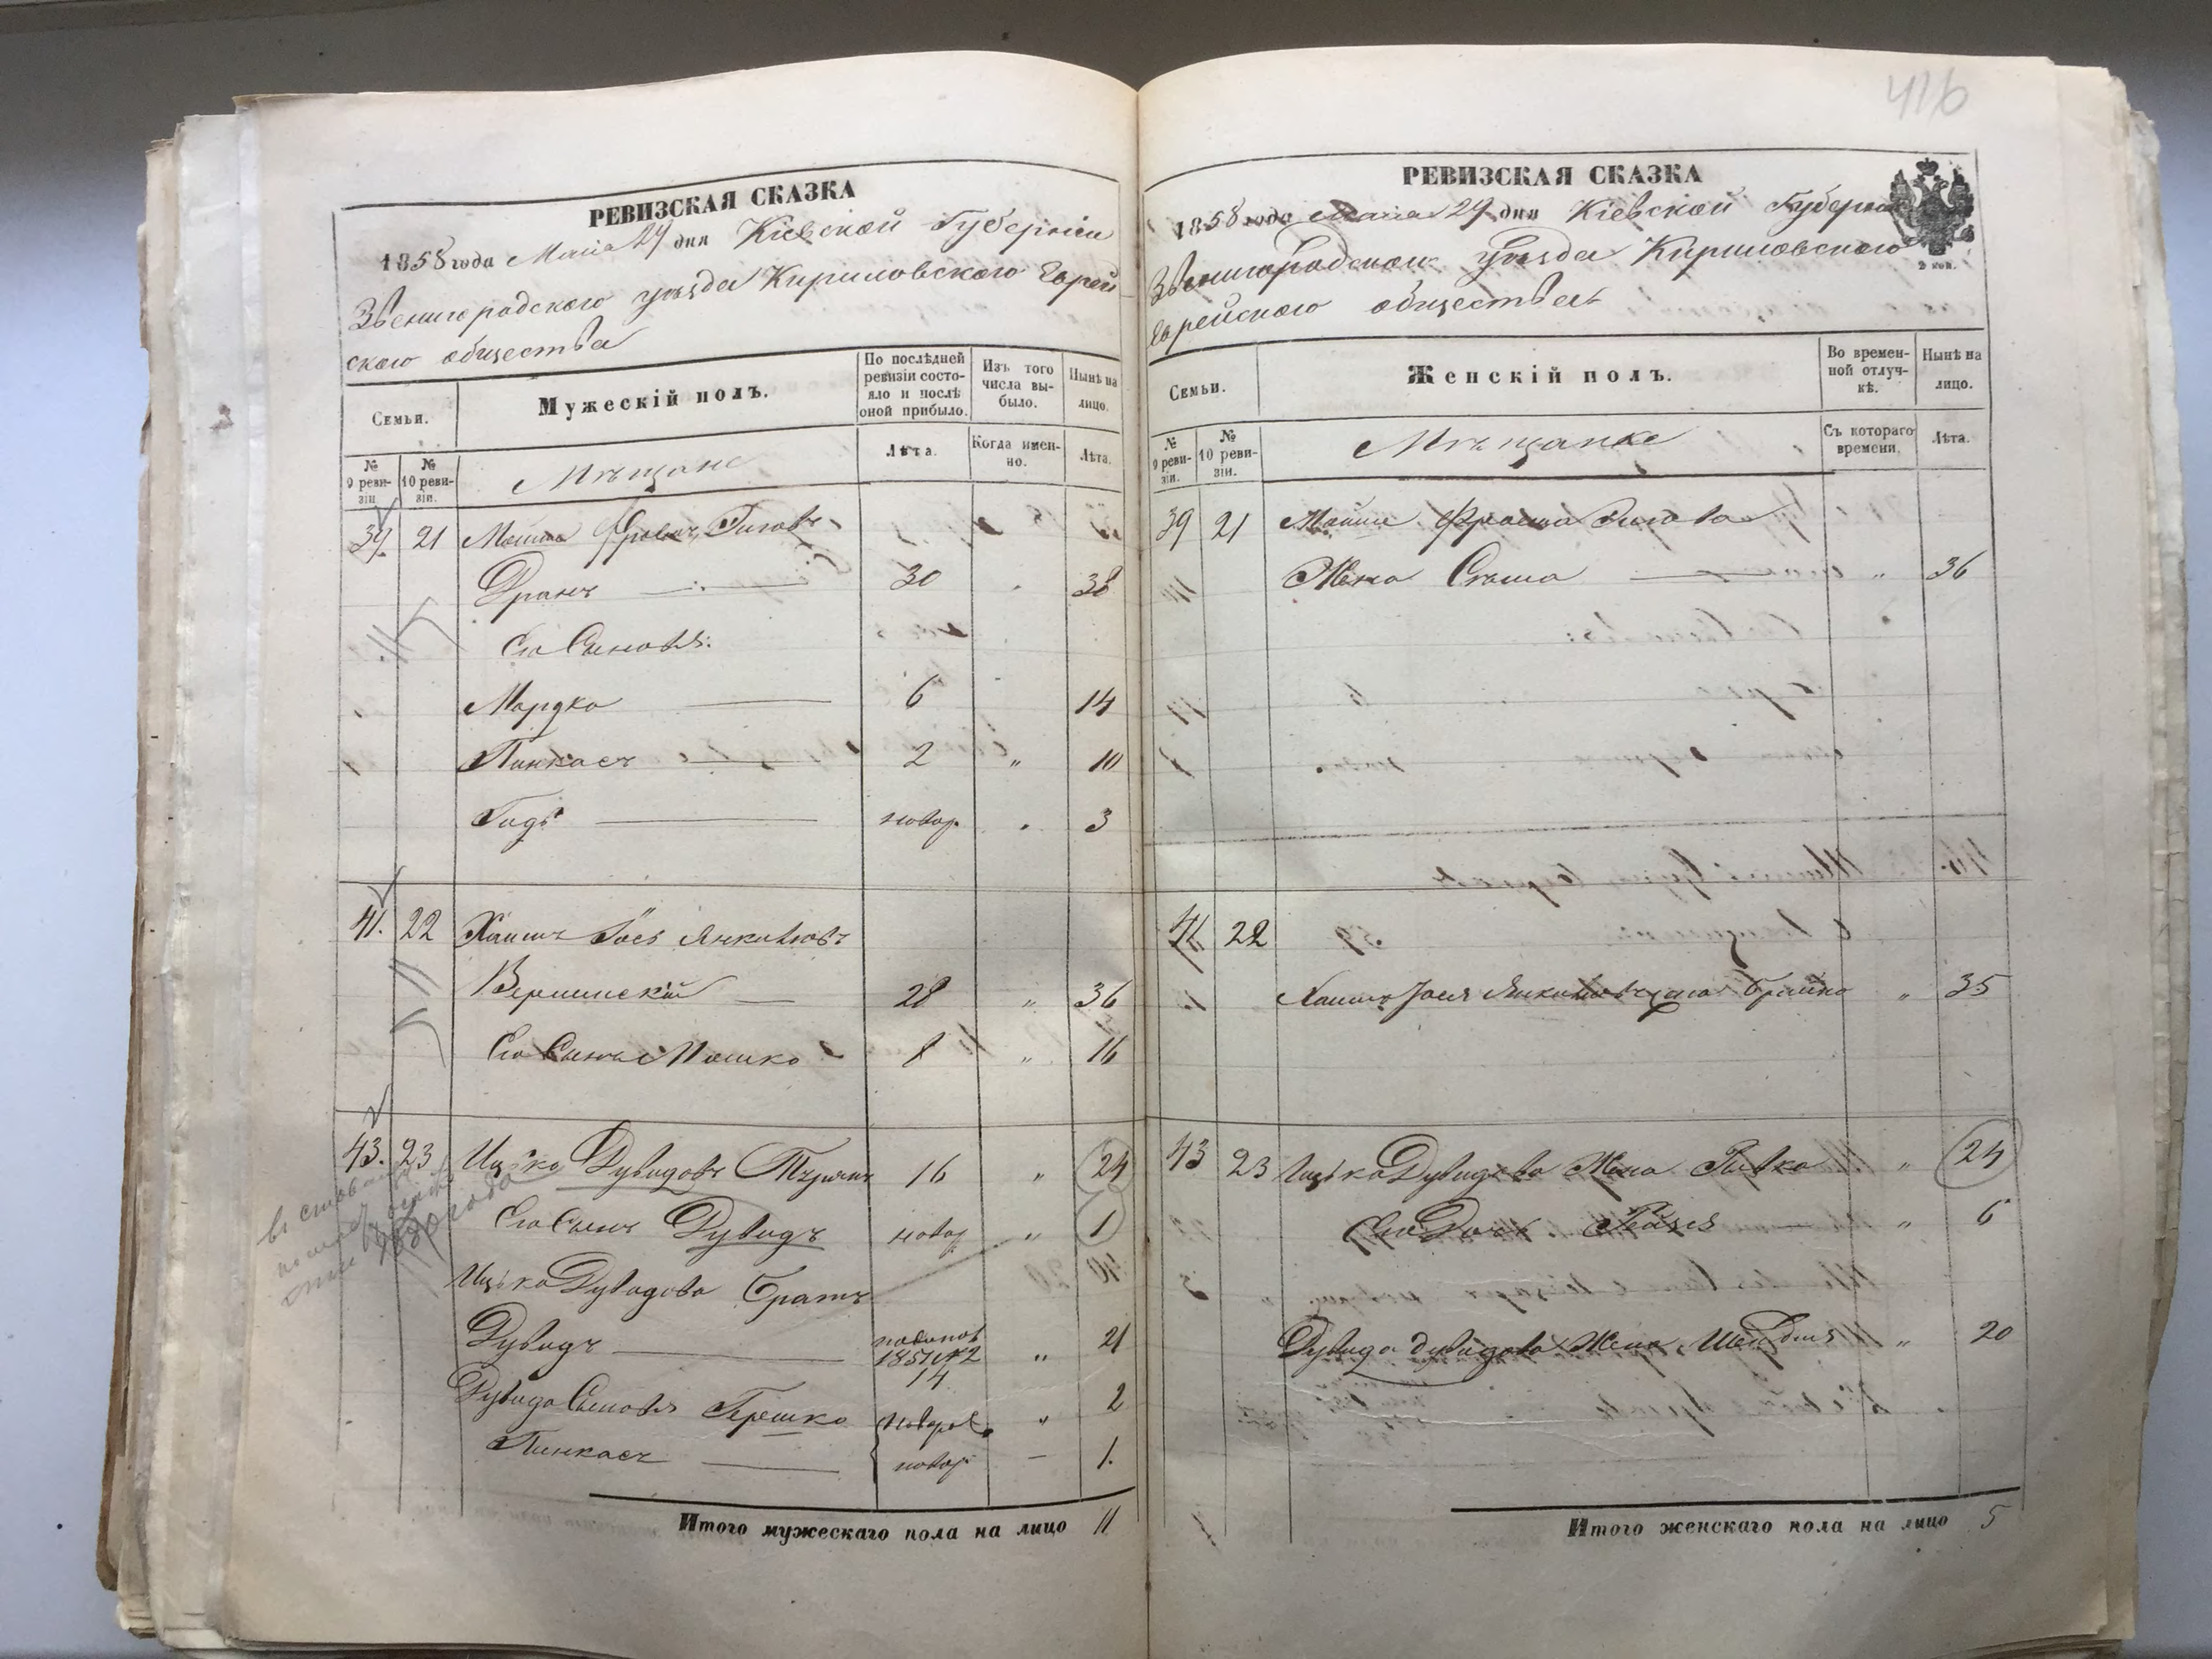 416
РЕВИЗСКАЯ СКАЗКА
1858 года Маія 29 дня Кіевской Губерніи
Звенигородского уѣзда Кириловского Еврей
ского общества
Семьи.
Мужескій полъ.
По послѣдней ревизіи состояло и послѣ оной прибыло.
Изъ того числа выбыло.
Нынѣ на лицо.
№ 9 ревизіи
№ 10 ревизіи.
Мѣщане
Лѣта.
Когда именно.
Лѣта.
39. 21 Мошко
30 " 38
Его Сыновья:
Мордко 6 14
Пинкасъ 2 " 10
новор. " 3
41. 22 Хаимъ Іось Янкилювъ
28 " 36
Его Сынъ Мошко 8 " 16
43. 23 Ицько Дувидовъ 16 " 24
Его Сынъ Дувидъ новор " 1
Ицька Дувидова Братъ
Дувидъ 1851 № 2 14 " 21
Дувида Сыновья Гершко новорож " 2
Пинкасъ новор — 1.
Итого мужескаго пола на лицо 11
РЕВИЗСКАЯ СКАЗКА
1858 года Маія 29 дня Кіевской Губерніи
2 коп.
Звенигородского уѣзда Кириловского
Еврейского общества
Семьи.
Женскій полъ.
Во временной отлучкѣ.
Нынѣ на лицо.
№ 9 ревизіи.
№ 10 ревизіи.
Мѣщанке
Съ котораго времени.
Лѣта.
39 21 Мошка
Жена " 36
41 22
Хаима Іося Янкилювскаго " 35
43 23 Ицька Дувидова Жена Ривка " 24
Его Дочь " 6
Дувида Дувидова Жена Шейндля " 20
Итого женскаго пола на лицо 5